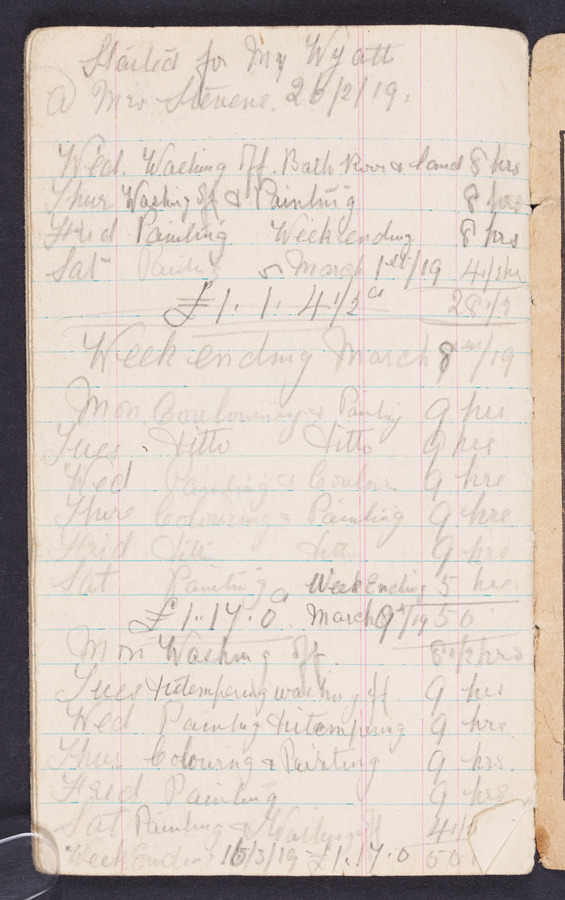 Started for Mr Wyatt
@ Mrs Stevens. 26/2/19.
Wed. Washing Off. Bath Room & Land 8 hrs
Thur Washing Off & Painting 8 hrs
Frid Painting Weekending 8 hrs
Sat Painting March 1st/19 4 1/2 hr
£1. 1. 4 1/2 d 28 1/2
Week ending March 8th/19
Mon. Coulouring & Painting 9 hrs
Tues ditto ditto 9 hrs
Wed Painting & 9 hrs
Thur Colouring & Painting 9 hrs
Frid ditto ditto 9 hrs
Sat Painting Week Ending 5 hrs
£1.17.0 March 9th/19 50
Mon Washing Off 8 1/2 hrs
Tues distempering washing off 9 hrs
Wed Painting distempering 9 hrs
Thur Colouring & Painting 9 hrs.
Frid Painting 9 hrs
Sat Painting & Washing off 4 1/2
Week Ending 15/3/19 £1.17.0 50